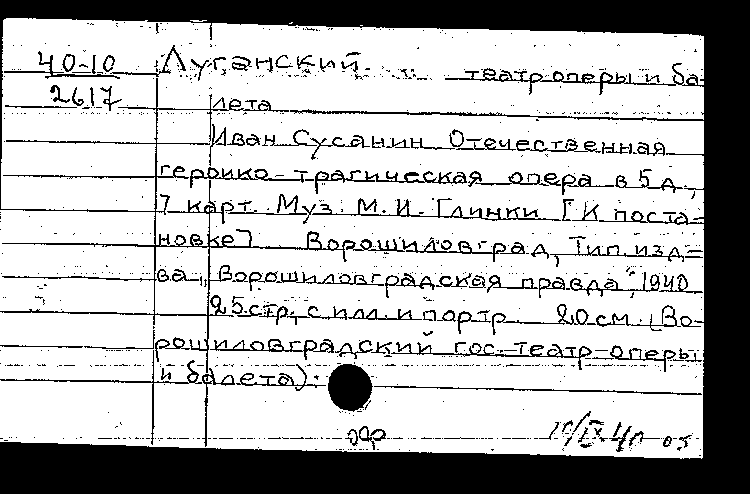 40-10
2617
Луганский. театр оперы и ба-
лета
Иван Сусанин Отечественная
героико-трагическая опера в 5 д.,
7 карт. Муз. М. И. Глинки [К поста-
новке] Ворошиловград, Тип. изд-
ва „Ворошиловградская правда“, 1940
25 стр. с илл. и портр. 20 см. (Во-
рошиловградский гос. театр оперы
и балета).
10/IX-40